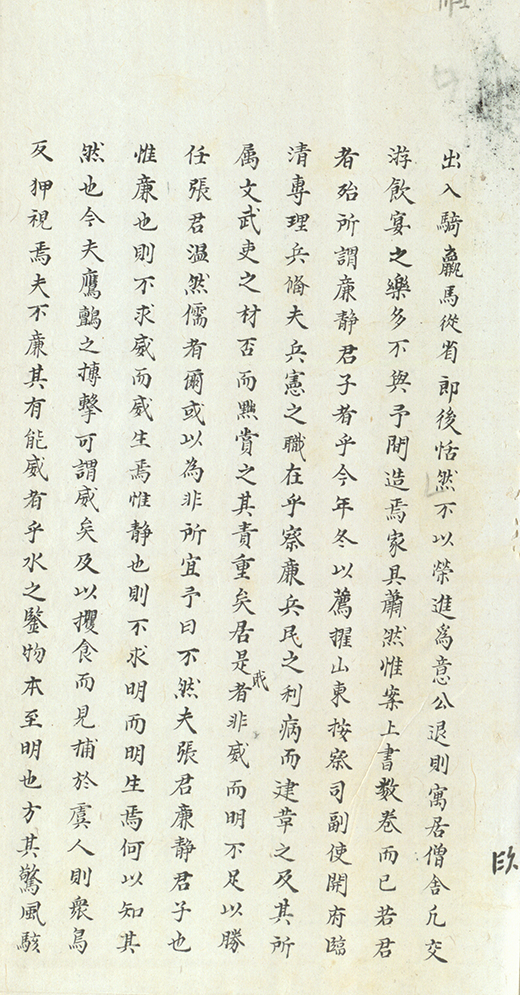 出入騎羸馬從省郎後恬然不以榮進爲意公退則寓居僧舍凡交
游飲宴之樂多不與予間造焉家具蕭然惟案上書數卷而已若君
者殆所謂廉静君子者乎今年冬以薦擢山東按察司副使開府臨
清專理兵俻夫兵憲之職在乎察廉兵民之利病而建革之及其所
属文武吏之材否而黜賞之其責重矣居是者非威而明不足以勝
戝
任張君温然儒者爾或以為非所宜予曰不然夫張君廉静君子也
惟廉也則不求威而威生焉惟静也則不求明而明生焉何以知其
然也今夫鷹鸇之搏擊可謂威矣及以攫食而見捕於虞人則衆鳥
反狎視焉夫不廉其有能威者乎水之鑒物本至明也方其驚風駭